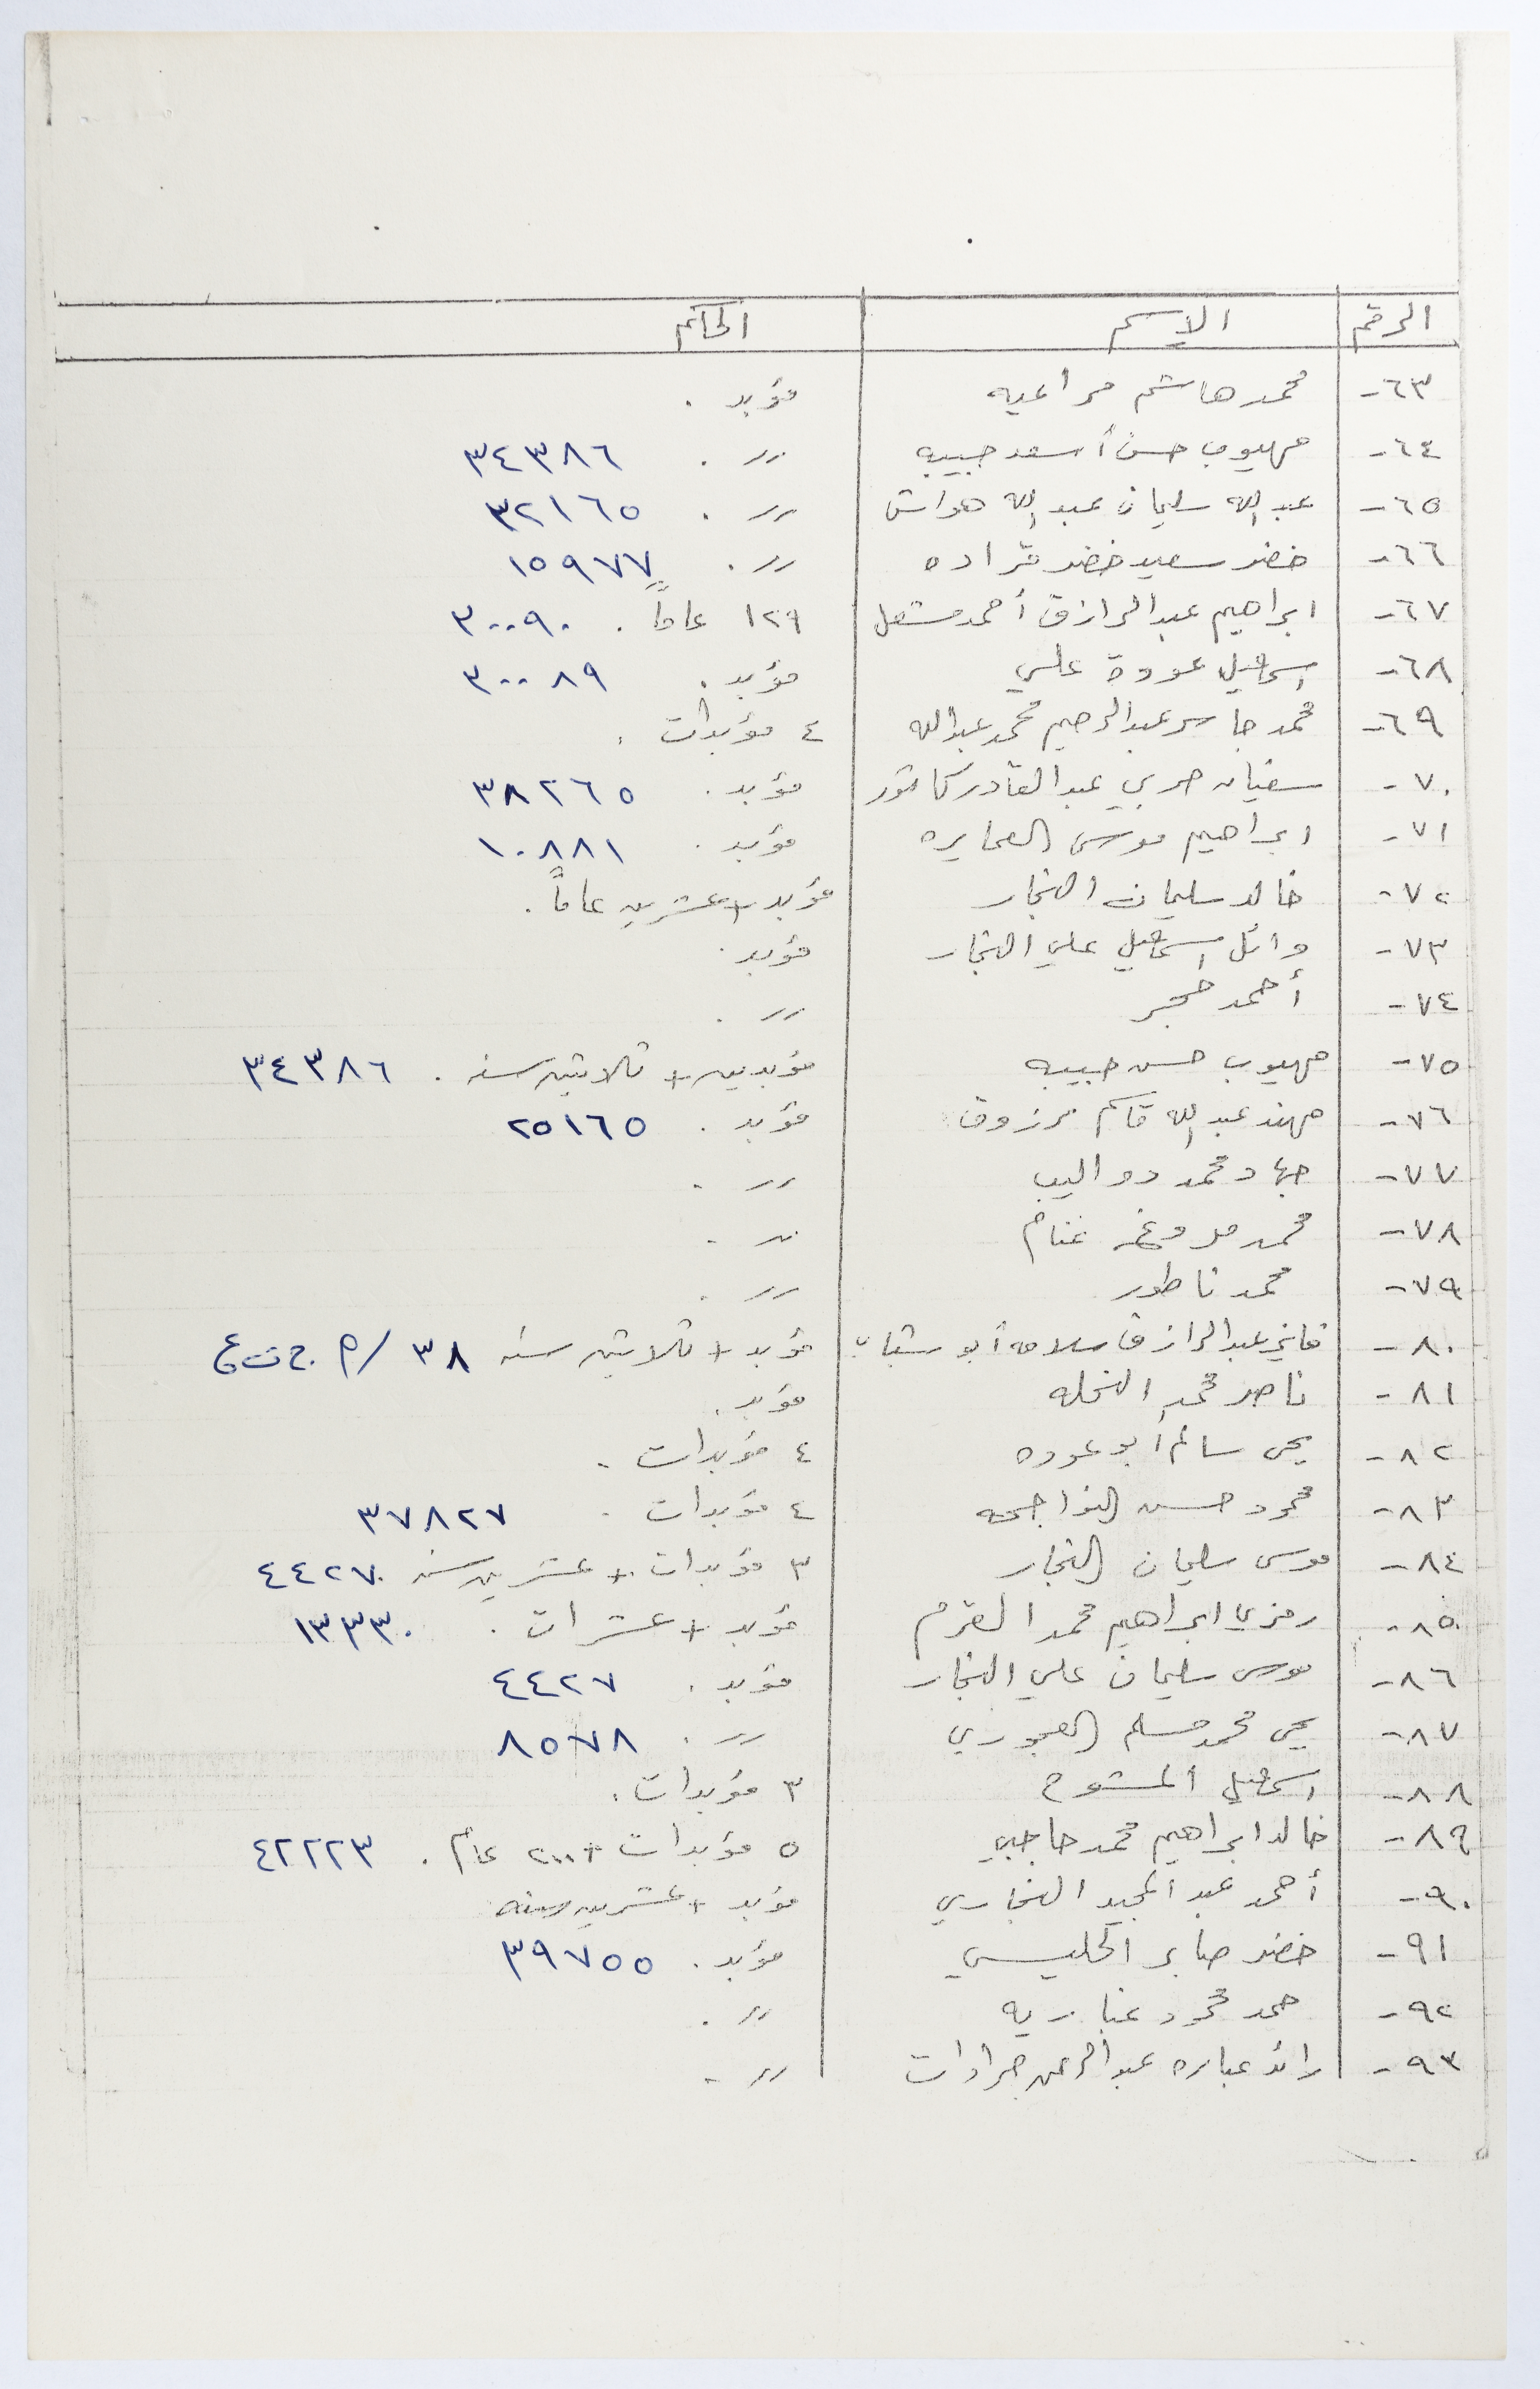 الرقم الاسم الحكم
٦٣- محمد هاشم مراعيه مؤبد .
٦٤- مهيوب حسن أسعد حبيبه 〃 . ٣٤٣٨٦
٦٥- عبد الله سليمان عبد الله هواش 〃 . ٣٢١٦٥
٦٦- خضر سعيد خضر قراده 〃 . ١٥٩٧٧
٦٧- ابراهيم عبد الرازق أحمد مشعل ١٢٩ عاماً . ٣٠٠٩٠
٦٨- اسماعيل عودة علي مؤبد . ٣٠٠٨٩
٦٩- محمد جاسر عبد الرحيم محمد عبد الله ٤ مؤبدات .
٧٠- سفيان حربي عبد القادر مؤبد . ٣٨٢٦٥
٧١- ابراهيم موسى العمايره مؤبد . ١٠٨٨١
٧٢- خالد سليمان النجار مؤبد + عشرين عاماً .
٧٣- وائل اسماعيل علي النجار مؤبد .
٧٤- أحمد 〃 .
٧٥- مهيوب حسن حبيبه مؤبدين + ثلاثين سنه . ٣٤٣٨٦
٧٦- مهند عبد الله قاسم مرزوق مؤبد . ٢٥١٦٥
٧٧- جهاد محمد دواليب 〃 .
٧٨- محمد غنام 〃 .
٧٩- محمد ناطور 〃 .
٨٠- عبد الرازق سلامه أبو شباب مؤبد + ثلاثين سنه ٣٨ /م
٨١- ناصر محمد النحله مؤبد .
٨٢- يحى سالم أبو عوده ٤ مؤبدات .
٨٣- محمود حسن النواجحه ٤ مؤبدات . ٣٧٨٢٧
٨٤- موسى سليمان النجار ٣ مؤبدات + عشرين سنه . ٤٤٢٧
٨٥- رمزي ابراهيم محمد القرم مؤبد + عشرات . ١٣٣٣٠
٨٦- موسى سليمان علي النجار مؤبد . ٤٤٢٧
٨٧- يحي محمد مسلم العجوري 〃 . ٨٥٧٨
٨٨- اسماعيل المشوح ٣ مؤبدات .
٨٩- خالد ابراهيم محمد حاجبي ٥ مؤبدات + ٢٠٠ عام . ٤٢٢٢٣
٩٠- أحمد عبد المجيد النجاري مؤبد + عشرين سنه
٩١- خضر صابر الحليسي مؤبد . ٣٩٧٥٥
٩٢- حمد محمود عباريه 〃 .
٩٣- رائد عباره عبد الرحمن جرادات 〃 .